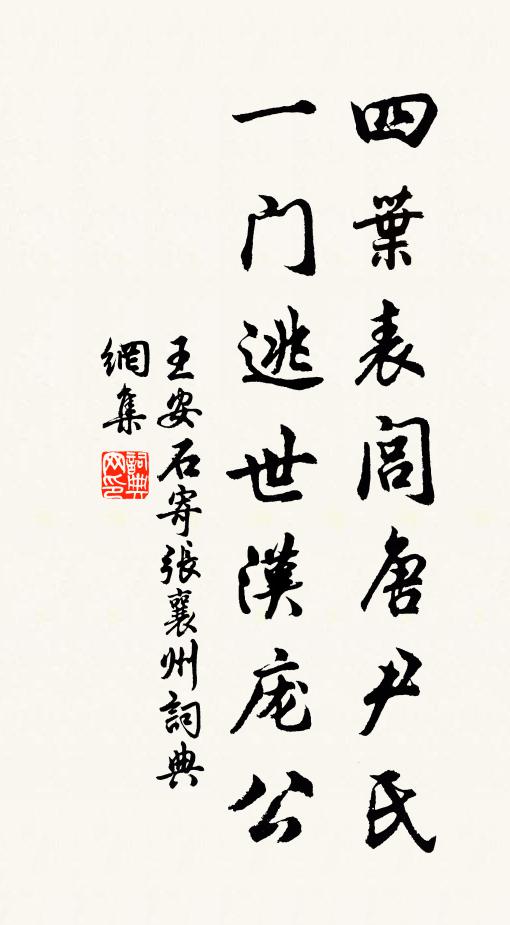 四葉表閭唐尹氏
一门逃世漢庞公
王安石寄張襄州詞典
網集
詞典
网印